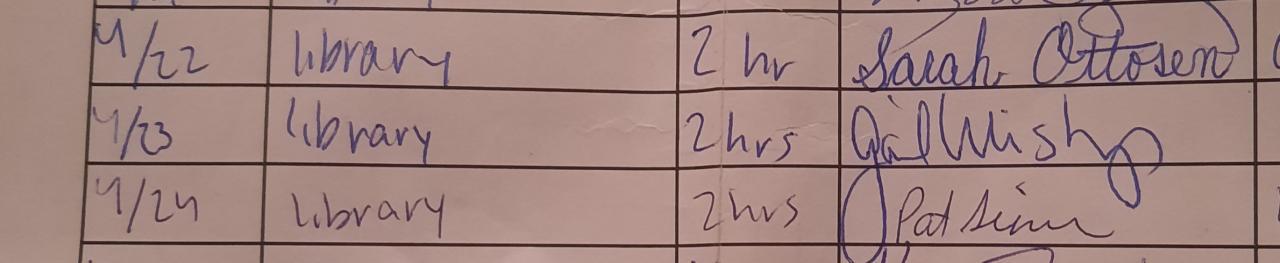 4/22 library 2 hr Sarah Ottosen
4/23 library 2 hrs Gail
4/24 library 2 hrs Pat